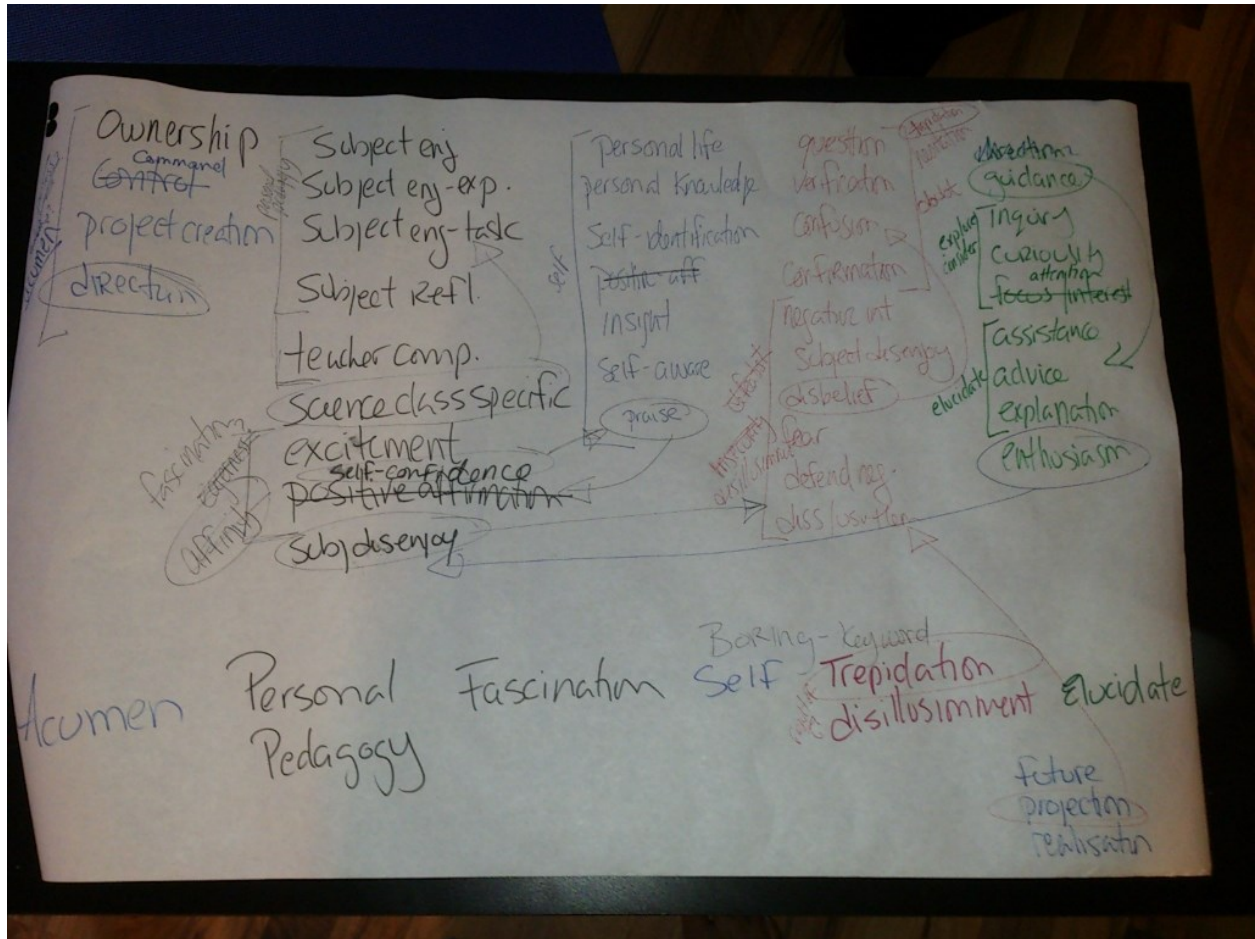 Ownership
Command
Control
project creation
directun
acumen
personal
pedagogy
Subject enj
Subject enj-exp.
Subject enj-task
Subject Refl.
teacher comp.
science class specific
excitement
self-confidence
positive affirmation
subj disenjoy
fascination
affinity
self
personal life
personal knowledge
Self-identification
positiv-aff
insight
Self-aware
praise
question
verification
confusion
confirmation
doubt
negative int
subject disenjoy
disbelief
fear
defend neg.
insecurity
disillusiment
trepidation
guidance
inquiry
curiousity
attention
focus/interest
explore
consider
assistance
advice
explanation
elucidate
enthusiasm
Acumen
Personal
Pedagogy
Fascination
Self
Boring - Keyword
Trepidation
disillusimment
Elucidate
future
projection
realisatun